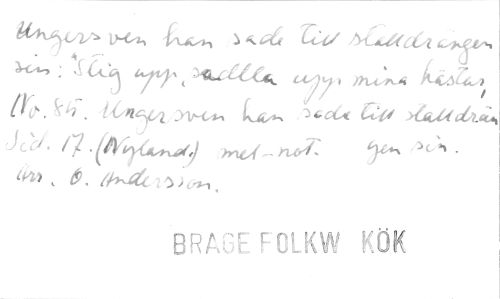 Ungersven han sade till stalldrängen
sin: "Stig upp, sadlla upp mina hästar,
No. 85. Ungersven han sade till stalldrän
Sid. 17. (Nyland.) mel-not. gen sin.
Arr. O. Andersson.
BRAGE FOLKW KÖK